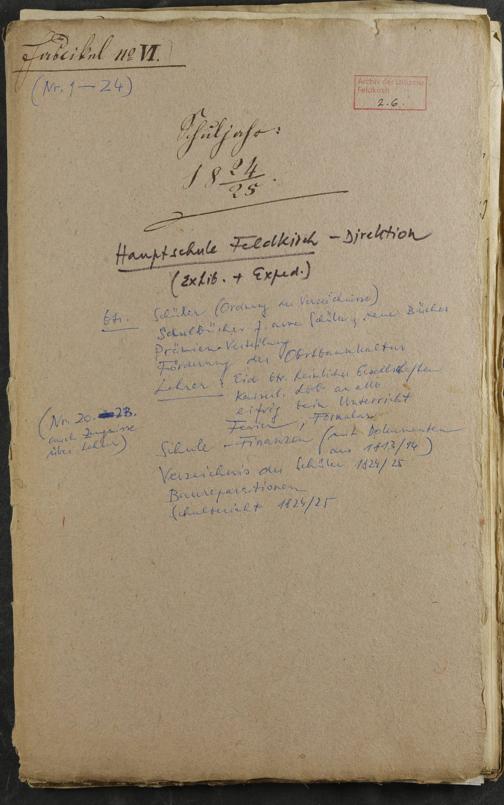 Fascikel no VI.
(Nr. 1 — 24)
Archiv der
Feldkirch
2.6.
Schuljahr:
18 24/25.
Hauptschule Feldkirch – Direktion
(Exhib. + Exped.)
btr. Schüler (Ordnung der Verzeichnisse)
Schulbücher f. arme Schüler, neue Bücher
Prämien-Verteilung
Förderung der Obstbaumkultur
Lehrer: Eid btr. heimliche Gesellschaften
Kaiserl. Lob an alle
eifrig beim Unterricht
Ferien, Formular
(Nr. 20. – 23.
auch Zeugnisse
über Lehrer)
Schule – Finanzen (mit Dokumenten
aus 1813/14)
Verzeichnis der Schüler 1824/25
Baureparationen
Schulbericht 1824/25